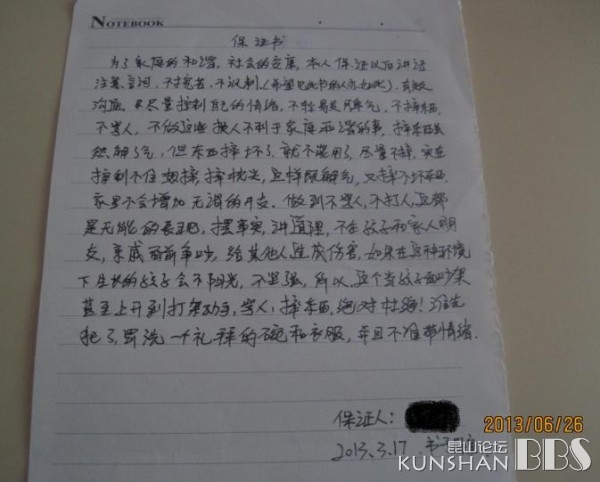 NOTEBOOK
保证书
为了家庭的和谐，社会的安康，本人保证以后讲话
注意言词，不挖苦，不讽刺，(希望见此书的人亦如此)，有效
沟通。尽量控制自己的情绪，不轻易发脾气，不摔东西，
不骂人，不做这些换人不利于家庭和谐的事，摔东西虽
然解了气，但东西摔坏了，就不能用了，尽量不摔，实在
控制不住想摔，摔枕头，这样既解气，又摔不坏东西，
家里不会增加无谓的开支。做到不骂人，不打人，这都
是无能的表现，摆事实，讲道理，不在孩子和家人朋
友，亲戚面前争吵，给其他人造成伤害，如果在这种环境
下生长的孩子会不阳光，不坚强，所以，这个当孩子面吵架
甚至上升到打架动手，骂人，摔东西，绝对杜绝！谁先
犯了，罚洗一个礼拜的碗和衣服，并且不准带情绪.
保证人：
2013.3.17
2013/06/26
昆山论坛
KUNSHAN BBS